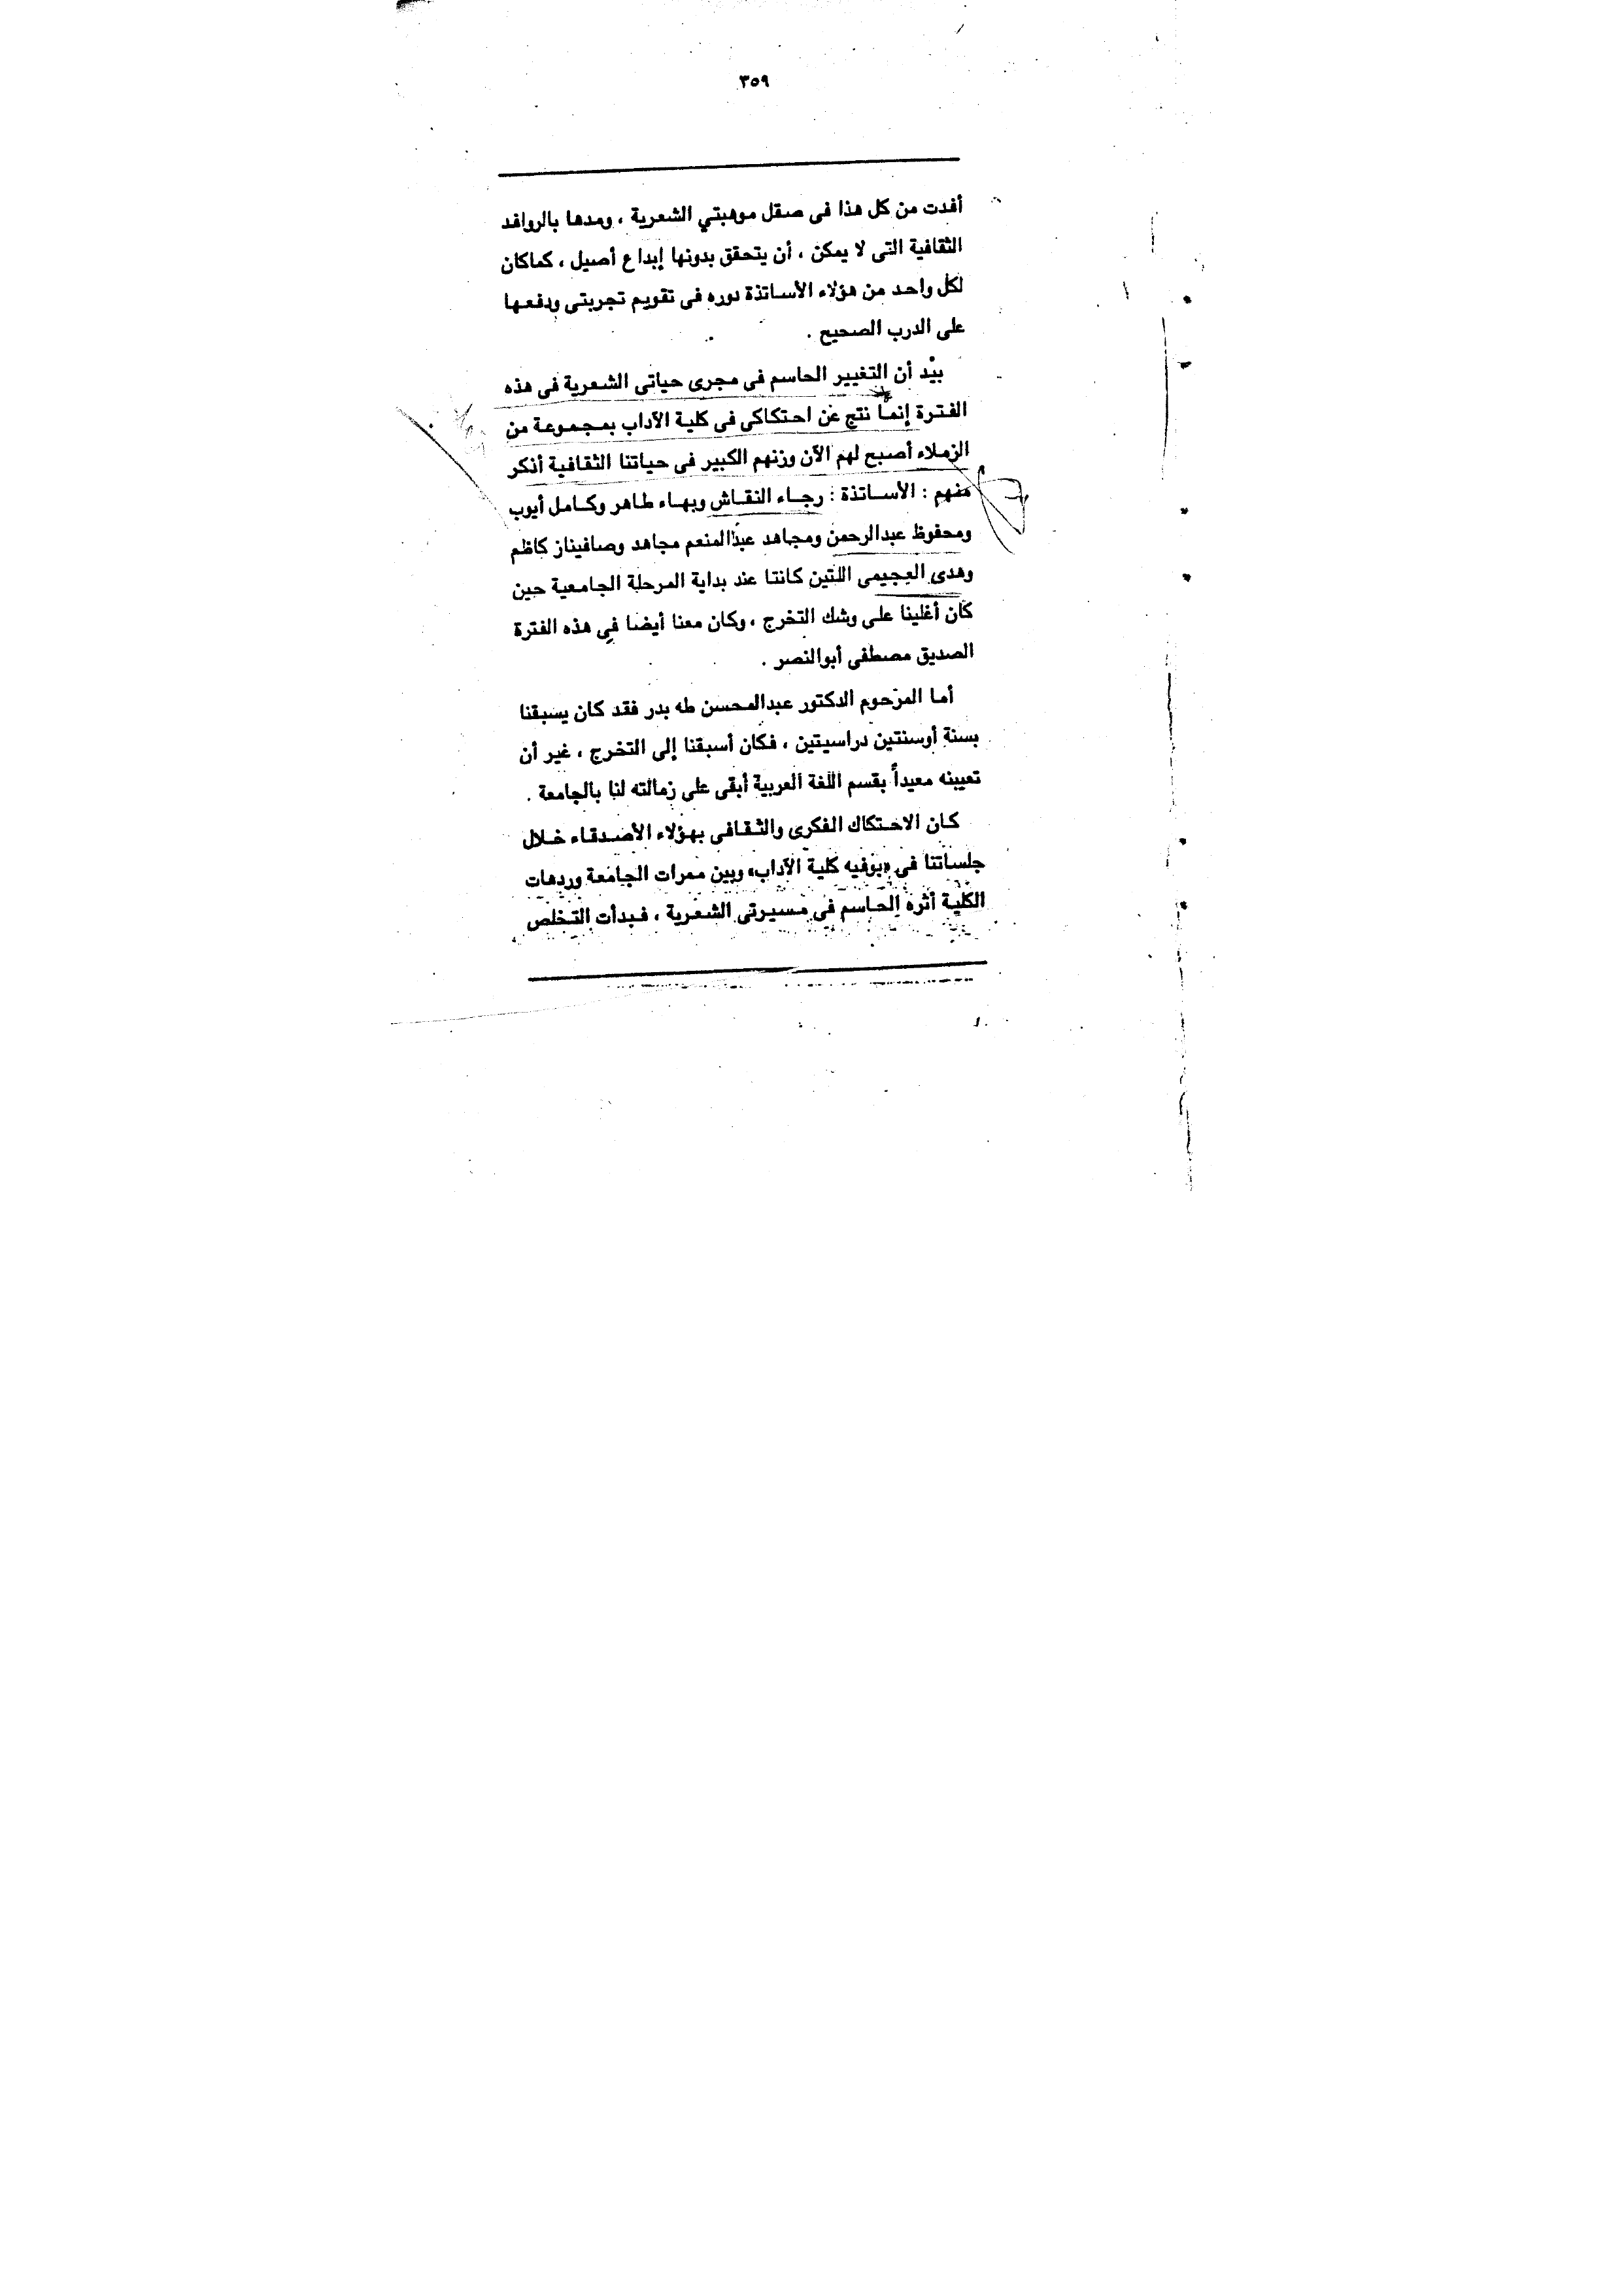 ٣٥٩
أفدت من كل هذا فى صقل موهبتي الشعرية ، ومدها بالروافد
الثقافية التى لا يمكن ، أن يتحقق بدونها إبداع أصيل ، كماكان
لكل واحد من هؤلاء الأساتذة دوره فى تقويم تجربتى ودفعها
على الدرب الصحيح .
بيْد أن التغيير الحاسم فى مجرى حياتى الشعرية فى هذه
الفترة إنما نتج عن احتكاكى فى كلية الآداب بمجموعة من
الزملاء أصبح لهم الآن وزنهم الكبير فى حياتنا الثقافية أذكر
منهم : الأساتذة : رجاء النقاش وبهاء طاهر وكامل أيوب
ومحفوظ عبدالرحمن ومجاهد عبدالمنعم مجاهد وصافيناز كاظم
وهدى العجيمى اللتين كانتا عند بداية المرحلة الجامعية حين
كان أغلينا على وشك التخرج ، وكان معنا أيضا فى هذه الفترة
الصديق مصطفى أبوالنصر .
أما المرحوم الدكتور عبدالمحسن طه بدر فقد كان يسبقنا
بسنة أوسنتين دراسيتين ، فكان أسبقنا إلى التخرج ، غير أن
تعيينه معيداً بقسم اللغة العربية أبقى على زمالته لنا بالجامعة .
كان الاحتكاك الفكرى والثقافى بهؤلاء الأصدقاء خلال
جلساتنا فى «بوفيه كلية الآداب» وبين ممرات الجامعة وردهات
الكلية أثره الحاسم فى مسيرتى الشعرية ، فبدأت التخلص